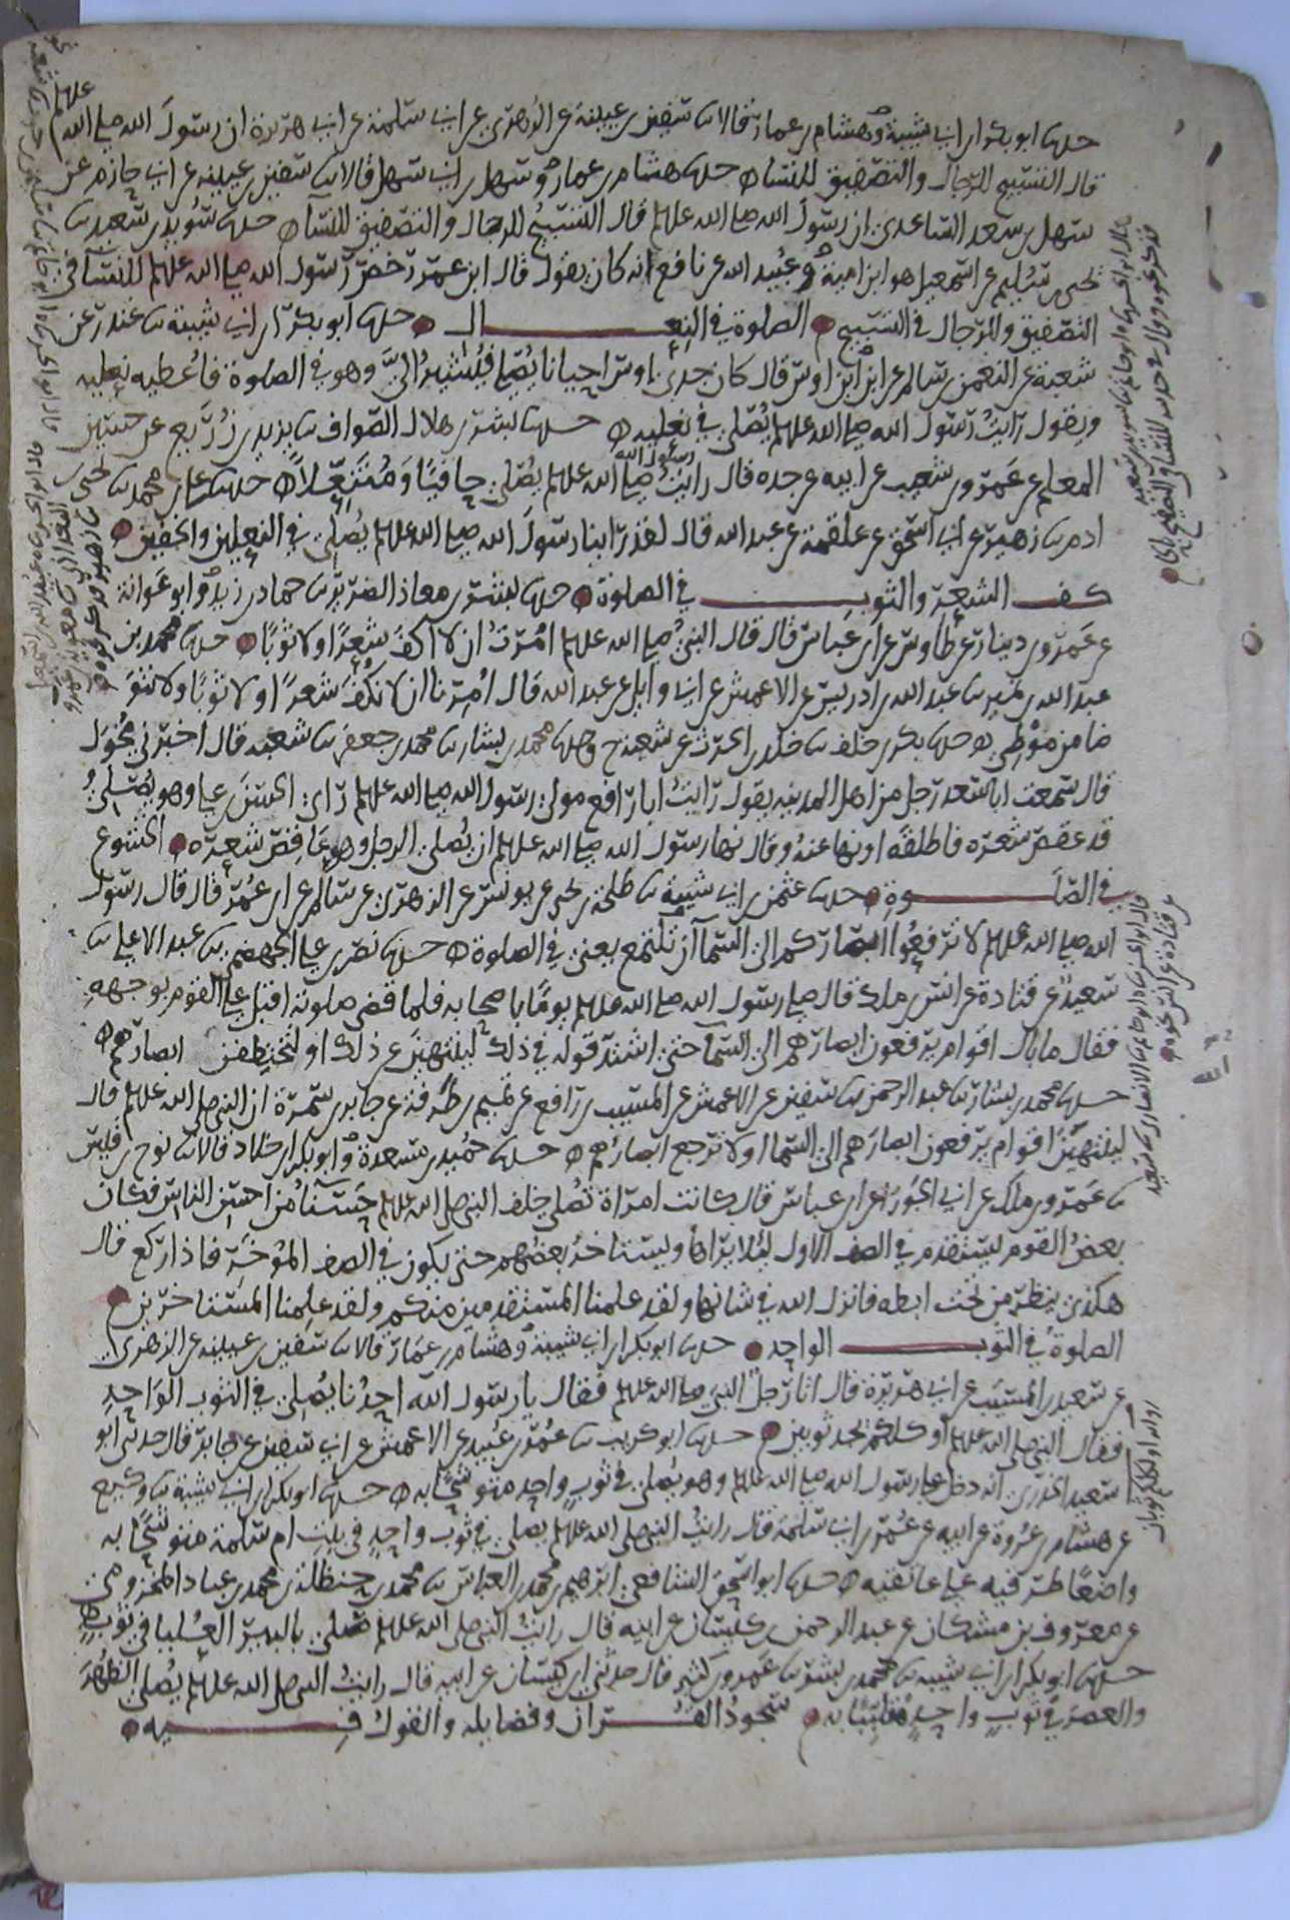 حدثنا ابو بكر ابن ابي شيبة وهشام بن عمار قالا ثنا سفين بن عيينة عن الزهري عن ابي سلمة عن ابي هريرة ان رسول الله صلى الله عليه وسلم
قال التسبيح للرجال والتصفيق للنساء حدثنا هشام بن عمار وسهل بن ابي سهل قالا ثنا سفين بن عيينة عن ابي حازم عن
سهل بن سعد الساعدي ان رسول الله صلى الله عليه وسلم قال التسبيح للرجال والتصفيق للنساء حدثنا سويد بن سعيد ثنا
يحيى بن سليم عن اسمعيل هو ابن امية وعبيد الله عن نافع انه كان يقول قال ابن عمر رخص رسول الله صلى الله عليه وسلم للنساء في
التصفيق وللرجال في التسبيح الصلوة في النعال حدثنا ابو بكر ابن ابي شيبة ثنا غندر عن
شعبة عن النعمن بن سالم عن ابن ابي اوس قال كان جدي اوس احيانا يصلي فيشير الي وهو في الصلوة فاعطيه نعليه
ويقول رايت رسول الله صلى الله عليه وسلم يصلي في نعليه حدثنا بشر بن هلال الصواف ثنا يزيد بن زريع عن حسين
المعلم عن عمرو بن شعيب عن ابيه عن جده قال رايت رسول الله صلى الله عليه وسلم يصلي حافيا ومنتعلا حدثنا علي بن محمد ثنا يحيى بن
ادم ثنا زهير عن ابي اسحق عن علقمة عن عبد الله قال لقد راينا رسول الله صلى الله عليه وسلم يصلي في النعلين والخفين
كف الشعر والثوب في الصلوة حدثنا بشر بن معاذ الضرير ثنا حماد بن زيد وابو عوانة
عن عمرو بن دينار عن طاوس عن ابن عباس قال قال النبي صلى الله عليه وسلم امرت ان لا اكف شعرا ولا ثوبا حدثنا محمد بن
عبد الله بن نمير ثنا عبد الله بن ادريس عن الاعمش عن ابي وايل عن عبد الله قال امرنا ان لا نكف شعرا ولا ثوبا ولا نتو
ضا من موطي حدثنا بكر بن خلف ثنا خلد بن الحرث عن شعبة ح وحدثنا محمد بن بشار ثنا محمد بن جعفر ثنا شعبة قال اخبرني مخول
قال سمعت ابا سعد رجل من اهل المدينة يقول رايت ابا رافع مولى رسول الله صلى الله عليه وسلم راى الحسن بن علي وهو يصلي
قد عقص شعره فاطلقه او نها عنه وقال نها رسول الله صلى الله عليه وسلم ان يصلي الرجل وهو عاقص شعره الخشوع
في الصلوة حدثنا عثمن بن ابي شيبة ثنا طلحة بن يحيى عن يونس عن الزهري عن سالم عن ابن عمر قال قال رسول
الله صلى الله عليه وسلم لا ترفعوا ابصاركم الى السماء ان تلتمع يعني في الصلوة حدثنا نصر بن علي الجهضمي ثنا عبد الاعلى ثنا
سعيد عن قتادة عن انس بن ملك قال صلى رسول الله صلى الله عليه وسلم يوما باصحابه فلما قضى صلوته اقبل على القوم بوجهه
فقال ما بال اقوام يرفعون ابصارهم الى السماء حتى اشتد قوله في ذلك لينتهين عن ذلك او لتخطفن ابصارهم
حدثنا محمد بن بشار ثنا عبد الرحمن ثنا سفين عن الاعمش عن المسيب بن رافع عن تميم بن طرفة عن جابر بن سمرة ان النبي صلى الله عليه وسلم قال
لينتهين اقوام يرفعون ابصارهم الى السماء او لا ترجع ابصارهم حدثنا حميد بن مسعدة وابو بكر ابن خلاد قالا ثنا نوح بن قيس
ثنا عمرو بن ملك عن ابي الجوزاء عن ابن عباس قال كانت امراة تصلي خلف النبي صلى الله عليه وسلم حسناء من احسن الناس فكان
بعض القوم يستقدم في الصف الاول ليلا يراها ويستاخر بعضهم حتى يكون في الصف المؤخر فاذا ركع قال
هكذى ينظر من تحت ابطه فانزل الله في شانها ولقد علمنا المستقدمين منكم ولقد علمنا المستاخرين
الصلوة في الثوب الواحد حدثنا ابو بكر ابن ابي شيبة وهشام بن عمار قالا ثنا سفين بن عيينة عن الزهري
عن سعيد بن المسيب عن ابي هريرة قال اتا رجل النبي صلى الله عليه وسلم فقال يا رسول الله احدنا يصلي في الثوب الواحد
فقال النبي صلى الله عليه وسلم او كلكم يجد ثوبين حدثنا ابو كريب ثنا عمر بن عبيد عن الاعمش عن ابي سفين عن جابر قال حدثني ابو
سعيد الخدري انه دخل على رسول الله صلى الله عليه وسلم وهو يصلي في ثوب واحد متوشحا به حدثنا ابو بكر ابن ابي شيبة ثنا وكيع
عن هشام بن عروة عن ابيه عن عمر بن ابي سلمة قال رايت النبي صلى الله عليه وسلم يصلي في ثوب واحد في بيت ام سلمة متوشحا به
واضعا طرفيه على عاتقيه حدثنا ابو اسحق الشافعي ابرهيم بن محمد بن العباس ثنا محمد بن حنظلة بن محمد بن عباد المخزومي
عن معروف بن مشكان عن عبد الرحمن بن كيسان عن ابيه قال رايت النبي صلى الله عليه وسلم يصلي بالبير العليا في ثوب
حدثنا ابو بكر ابن ابي شيبة ثنا محمد بن بشر ثنا عمرو بن كثير قال حدثني ابن كيسان عن ابيه قال رايت النبي صلى الله عليه وسلم يصلي الظهر
والعصر في ثوب واحد متلببا به سجود القران وفضايله والقول فيه